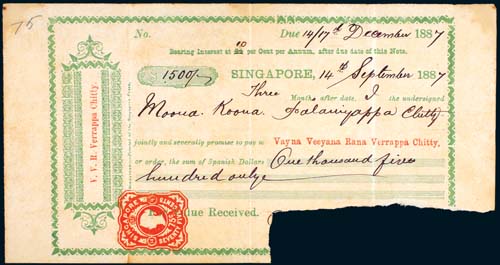 75
No. Due 14/17th December 1887
Bearing Interest at 10 per Cent per Annum, after due date of this Note.
1500/- SINGAPORE, 14th September 1887
Three Months after date, I the undersigned
Moona. Koona. Palaniyappa Chitty
jointly and severally promise to pay to Vayna Veeyana Rana Verrappa Chitty,
or order, the sum of Spanish Dollars One thousand five
hundred only
due Received.
V. V. R. Verrappa Chitty.
SINGAPORE
SEVENTY CENTS